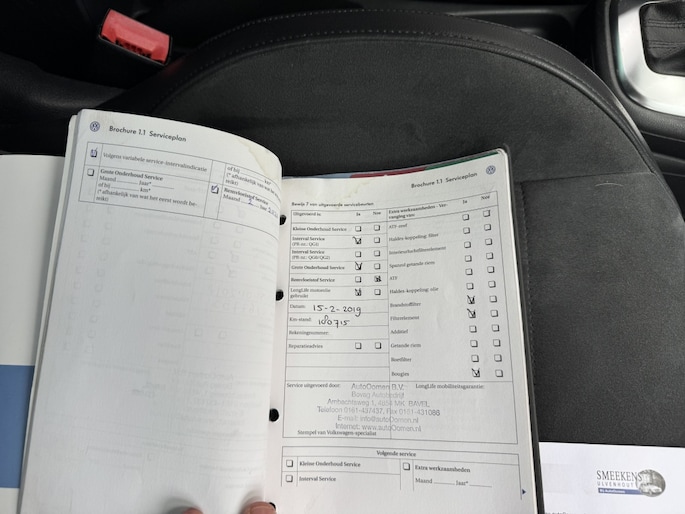 Brochure 1.1 Serviceplan
Volgens variabele service-intervalindicatie
Grote Onderhoud Service
Maand jaar*
of bij km*
(* afhankelijk van wat het eerst wordt be-
reikt)
of bij km*
(* afhankelijk van wat het
reikt)
Remvloeistof Service
Maand 2
Brochure 1.1 Serviceplan
Bewijs 7 van uitgevoerde servicebeurten
Uitgevoerd is: Ja Nee
Kleine Onderhoud Service
Interval Service
(PR-nr.: QG1)
Interval Service
(PR-nr.: QG0/QG2)
Grote Onderhoud Service
Remvloeistof Service
LongLife motorolie
gebruikt
Datum: 15-2-2019
Km-stand: 180715
Rekeningnummer:
Reparatieadvies
Extra werkzaamheden - Ver-
vanging van: Ja Nee
ATF
Haldex-koppeling: filter
Interieurluchtfilterelement
Spanrol getande riem
ATF
Haldex-koppeling: olie
Brandstoffilter
Filterelement
Additief
Getande riem
Roetfilter
Bougies
Service uitgevoerd door:
LongLife mobiliteitsgarantie:
AutoOomen B.V.
Bovag Autobedrijf
Ambachtsweg 1, 4854 MK BAVEL
Telefoon 0161-437437, Fax 0161-431086
E-mail: info@autoOomen.nl
Internet: www.autoOomen.nl
Stempel van Volkswagen-specialist
Volgende service
Kleine Onderhoud Service
Interval Service
Extra werkzaamheden
Maand jaar*
SMEEKENS
ULVENHOUT
By AutoOomen